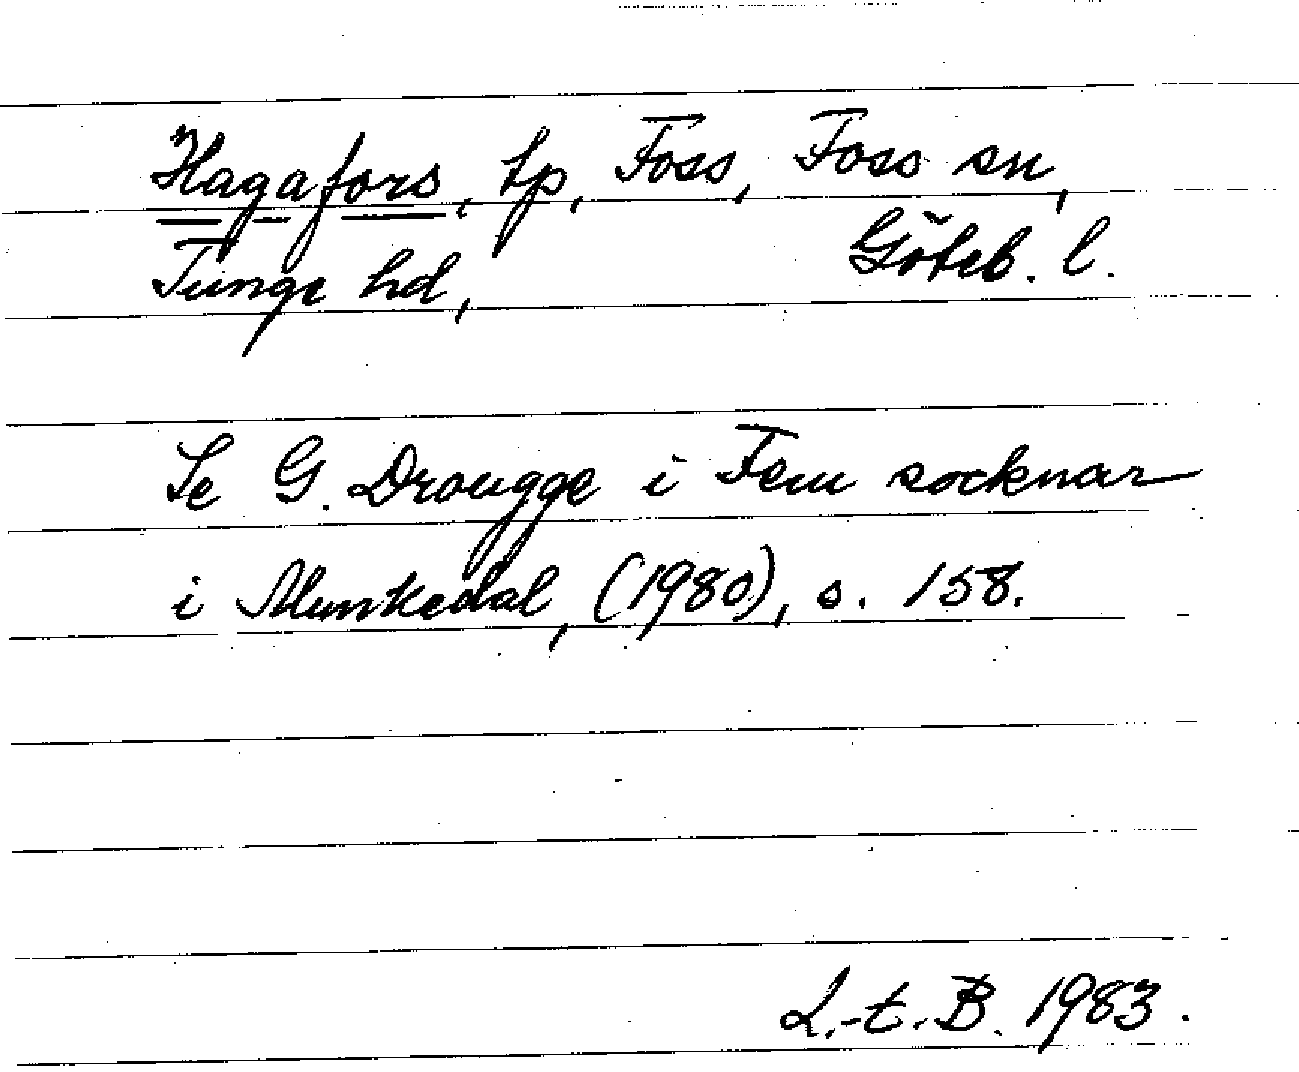 Hagafors, tp, Foss, Foss sn,
Tunge hd, Göteb. l.
Se G. Drougge i Fem socknar
i Munkedal, (1980), s. 158.
L.-t.B. 1983.